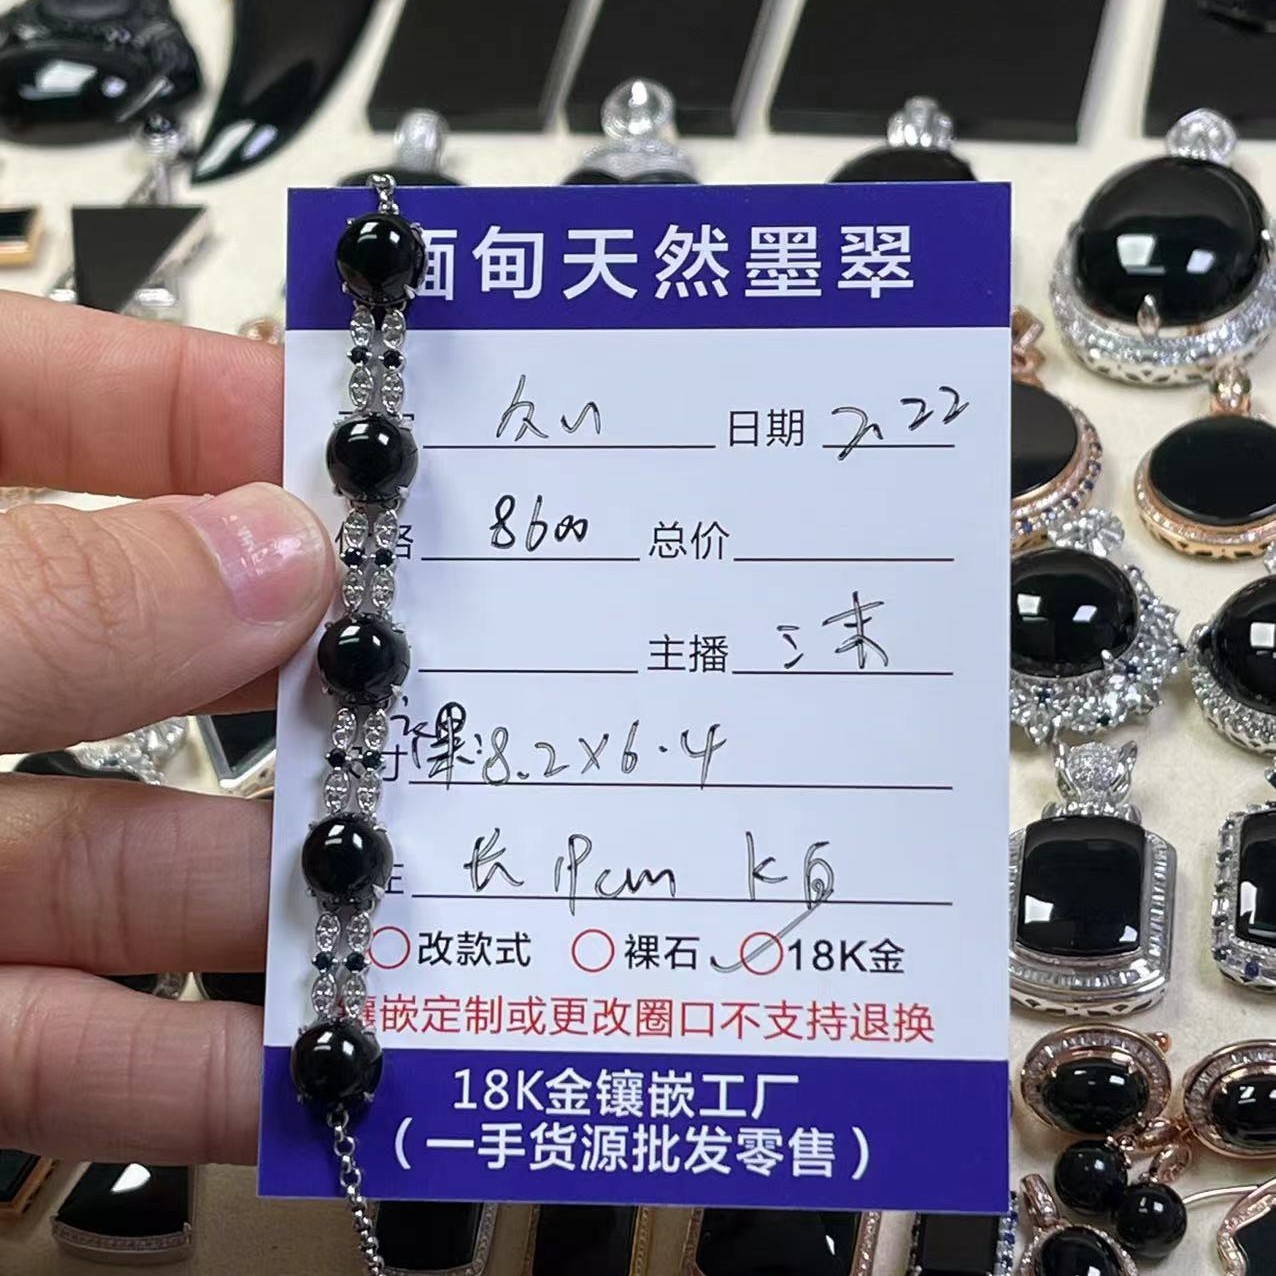 缅甸天然墨翠
日期 2.22
价格 8600 总价
主播 三末
尺寸 裸:8.2×6.4
注 长19cm
改款式 裸石 18K金
镶嵌定制或更改圈口不支持退换
18K金镶嵌工厂
(一手货源批发零售)